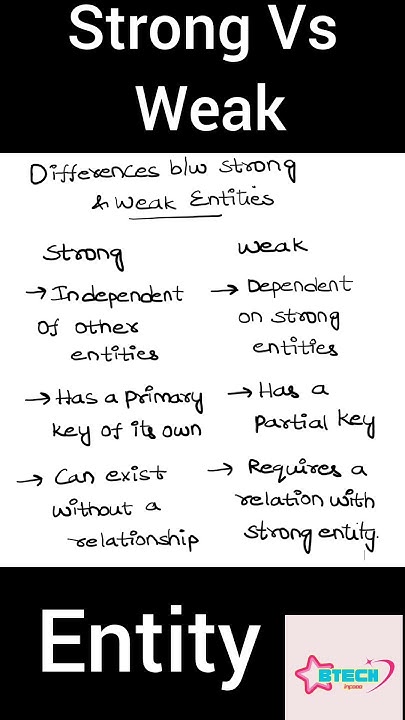 Strong Vs
Weak
Differences b/w strong
& weak Entities
Strong
→ Independent
of other
entities
→ Has a primary
key of its own
→ Can exist
without a
relationship
Weak
→ Dependent
on strong
entities
→ Has a
Partial key
→ Requires a
relation with
strong entity.
Entity
BTECH